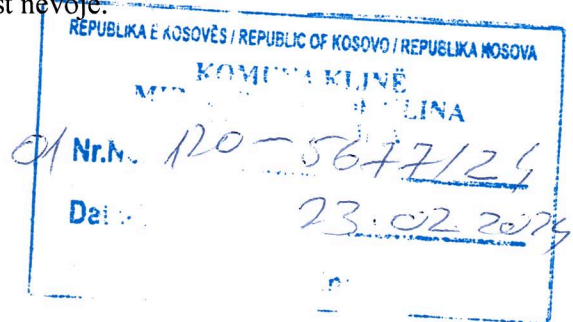 st nevoje.
REPUBLIKA E KOSOVËS / REPUBLIC OF KOSOVO / REPUBLIKA KOSOVA
KOMUNA KLINË
LINA
01 Nr.N. 120-5677/24
Da
23.02.2024